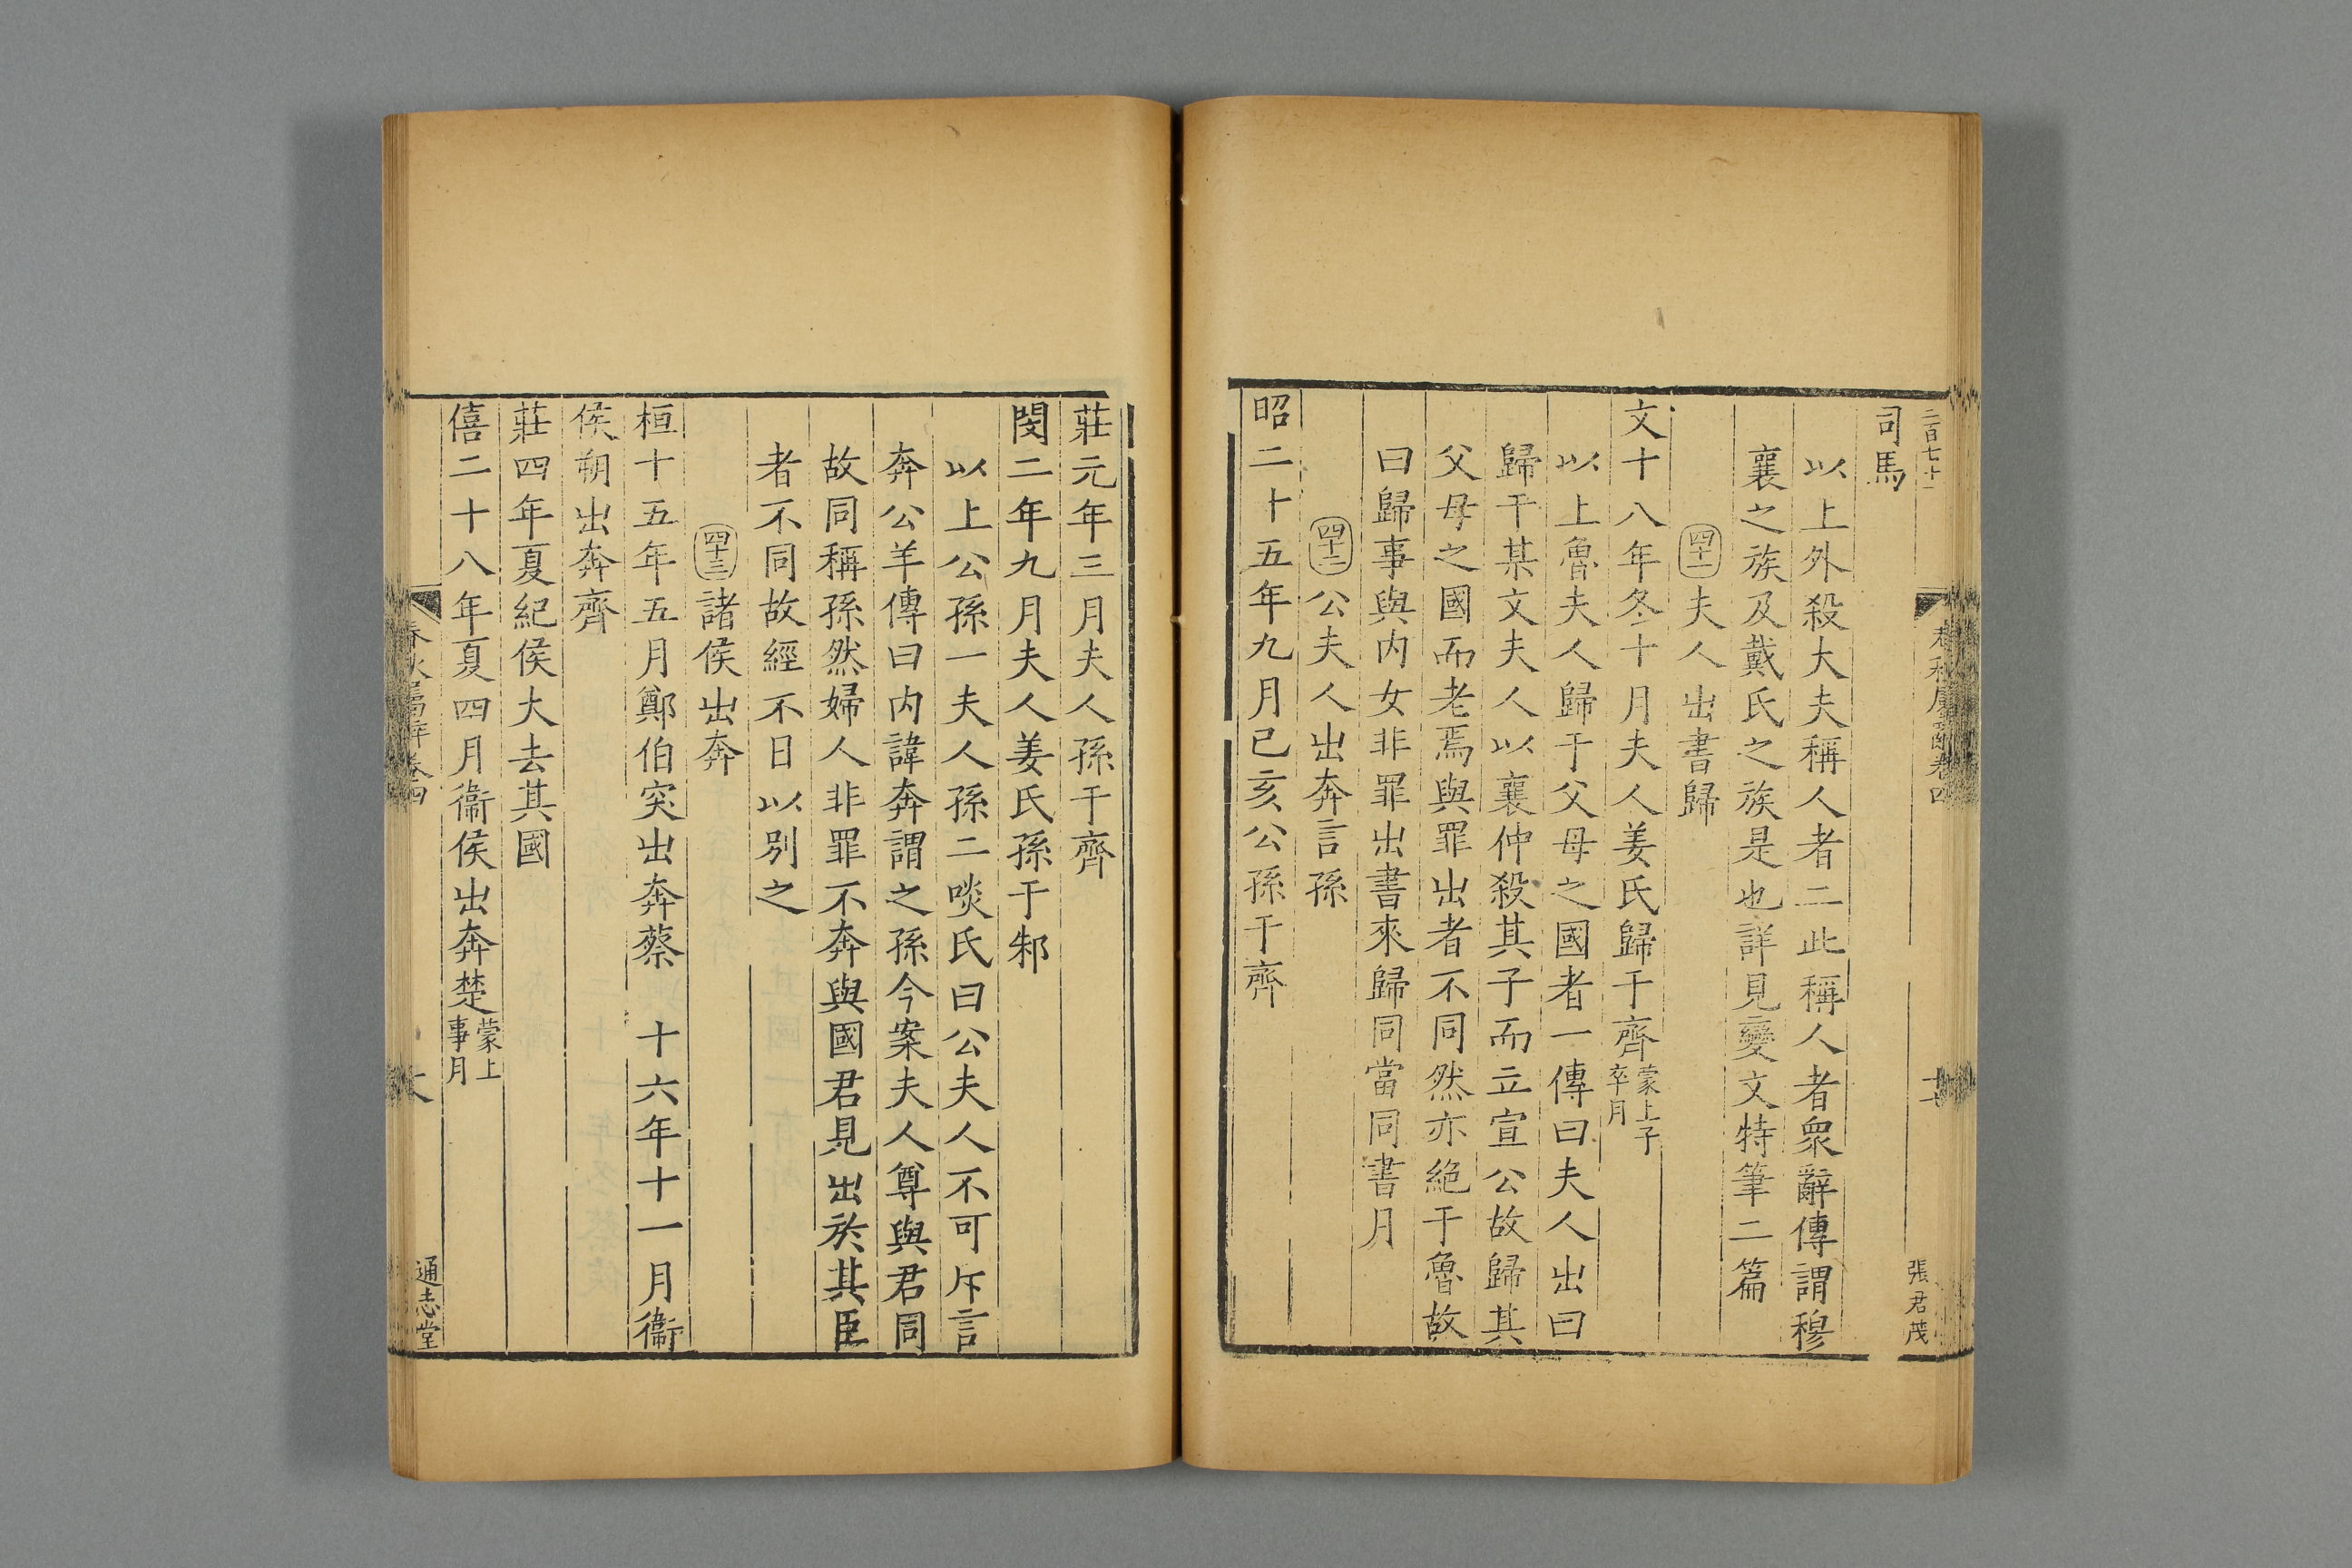 二百七十一
春秋屬辭卷四
十七
張君茂
司馬
以上外殺大夫稱人者二此稱人者衆辭傳謂穆
襄之族及戴氏之族是也詳見變文特筆二篇
四十一夫人出書歸
文十八年冬十月夫人姜氏歸于齊蒙上子卒月
以上魯夫人歸于父母之國者一傳曰夫人出曰
歸于某文夫人以襄仲殺其子而立宣公故歸其
父母之國而老焉與罪出者不同然亦絕于魯故
曰歸事與内女非罪出書來歸同當同書月
四十二公夫人出奔言孫
昭二十五年九月己亥公孫于齊
莊元年三月夫人孫于齊
閔二年九月夫人姜氏孫于邾
以上公孫一夫人孫二啖氏曰公夫人不可斥言
奔公羊傳曰内諱奔謂之孫今案夫人尊與君同
故同稱孫然婦人非罪不奔與國君見出於其臣
者不同故經不日以別之
四十三諸侯出奔
桓十五年五月鄭伯突出奔蔡　十六年十一月衞
侯朔出奔齊
莊四年夏紀侯大去其國
僖二十八年夏四月衞侯出奔楚蒙上事月
春秋屬辭卷四
通志堂